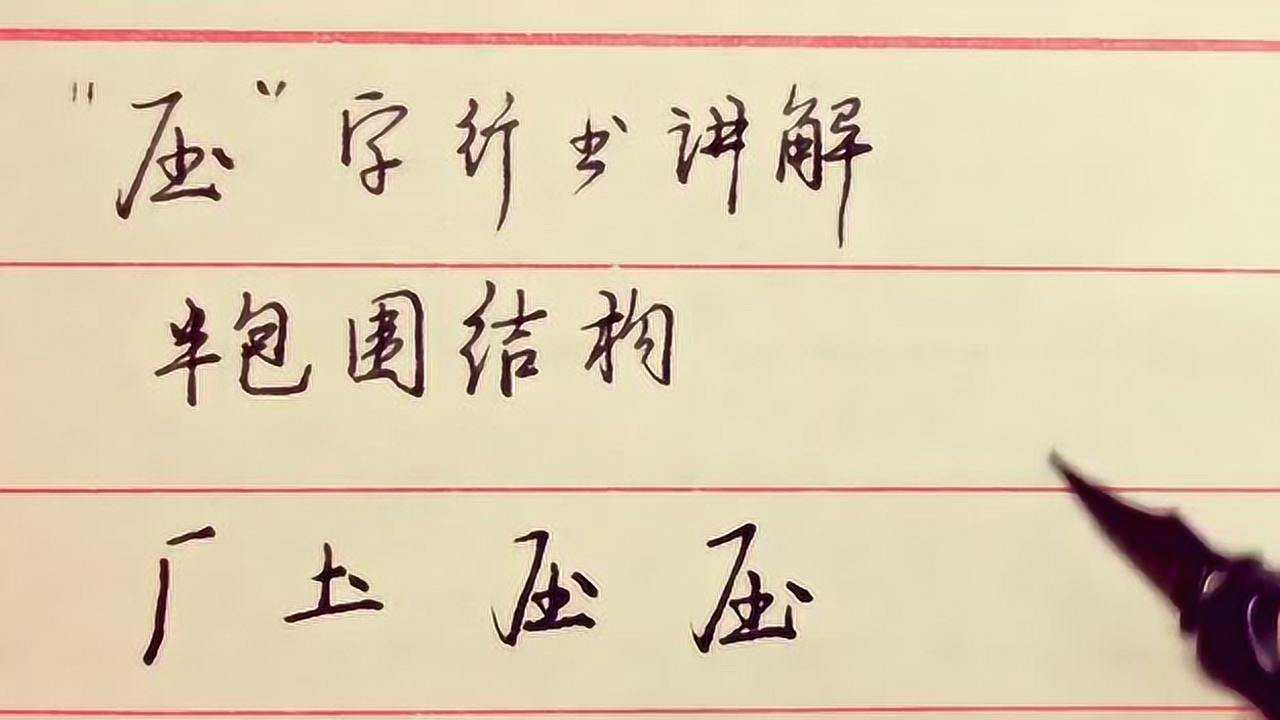 "压"字行书讲解
半包围结构
厂 圡 压 压